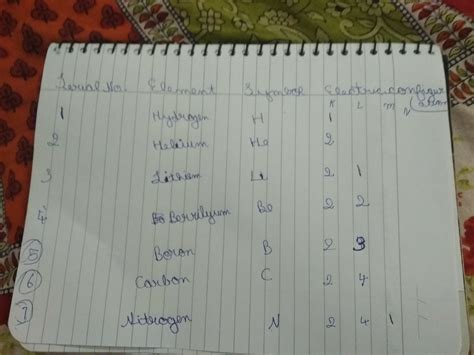 Serial No. Element Symbol Electric configuration
K L M N
1 Hydrogen H 1
2 Helium He 2
3 Li 2 1
4 Berrilyum Be 2 2
5 Boron B 2 3
6 Carbon C 2 4
7 Nitrogen N 2 4 1